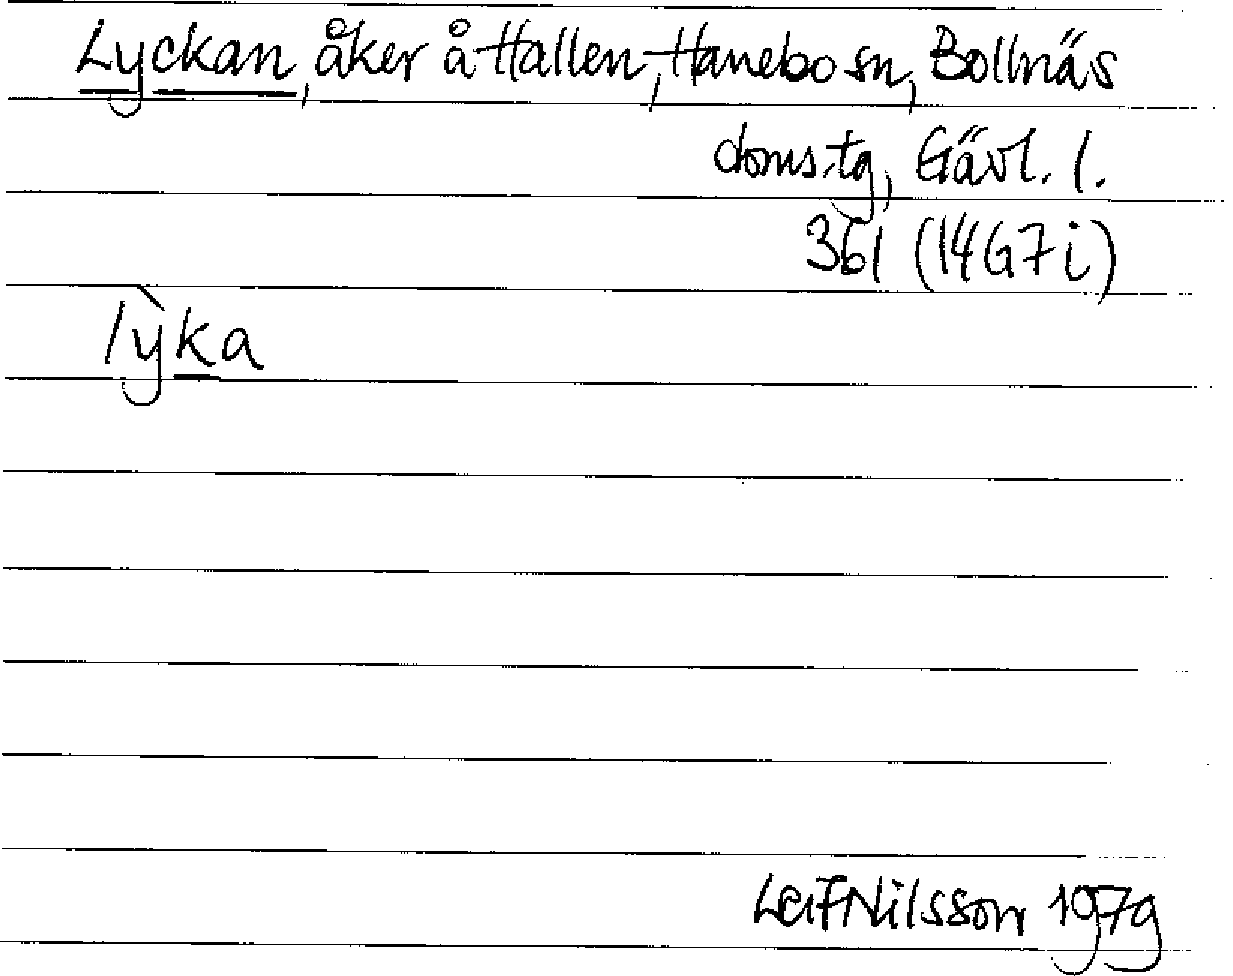 Lyckan, åker å Hallen, Hanebo sn, Bollnäs
doms.tg, Gävl. l.
361 (14G7i)
lỳka
Leif Nilsson 1979